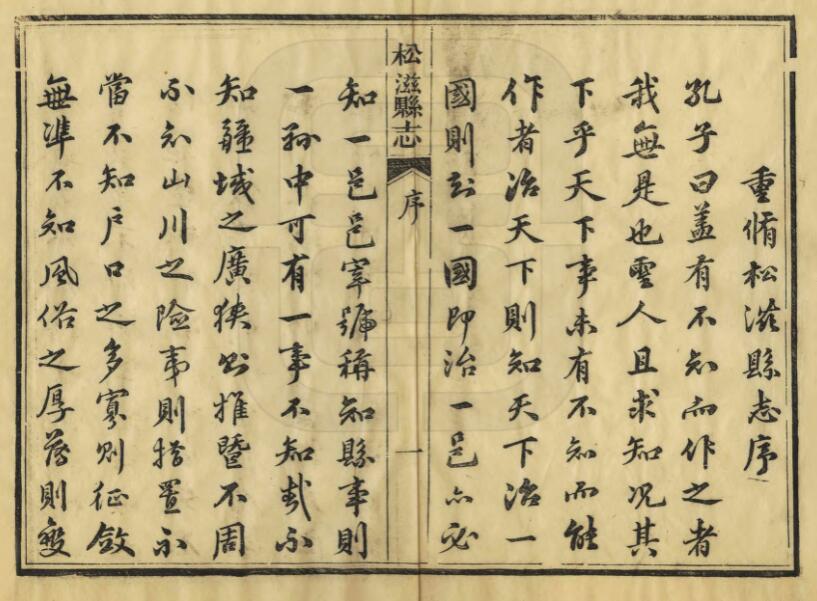 重脩松滋縣志序
孔子曰蓋有不知而作之者
我無是也聖人且求知况其
下乎天下事未有不知而能
作者治天下則知天下治一
國則知一國即治一邑亦必
松滋縣志
序
一
知一邑邑宰號稱知縣事則
一縣中可有一事不知哉不
知疆域之廣狹則推暨不周
不知山川之險夷則措置不
當不知户口之多寡則征斂
無準不知風俗之厚薄則變